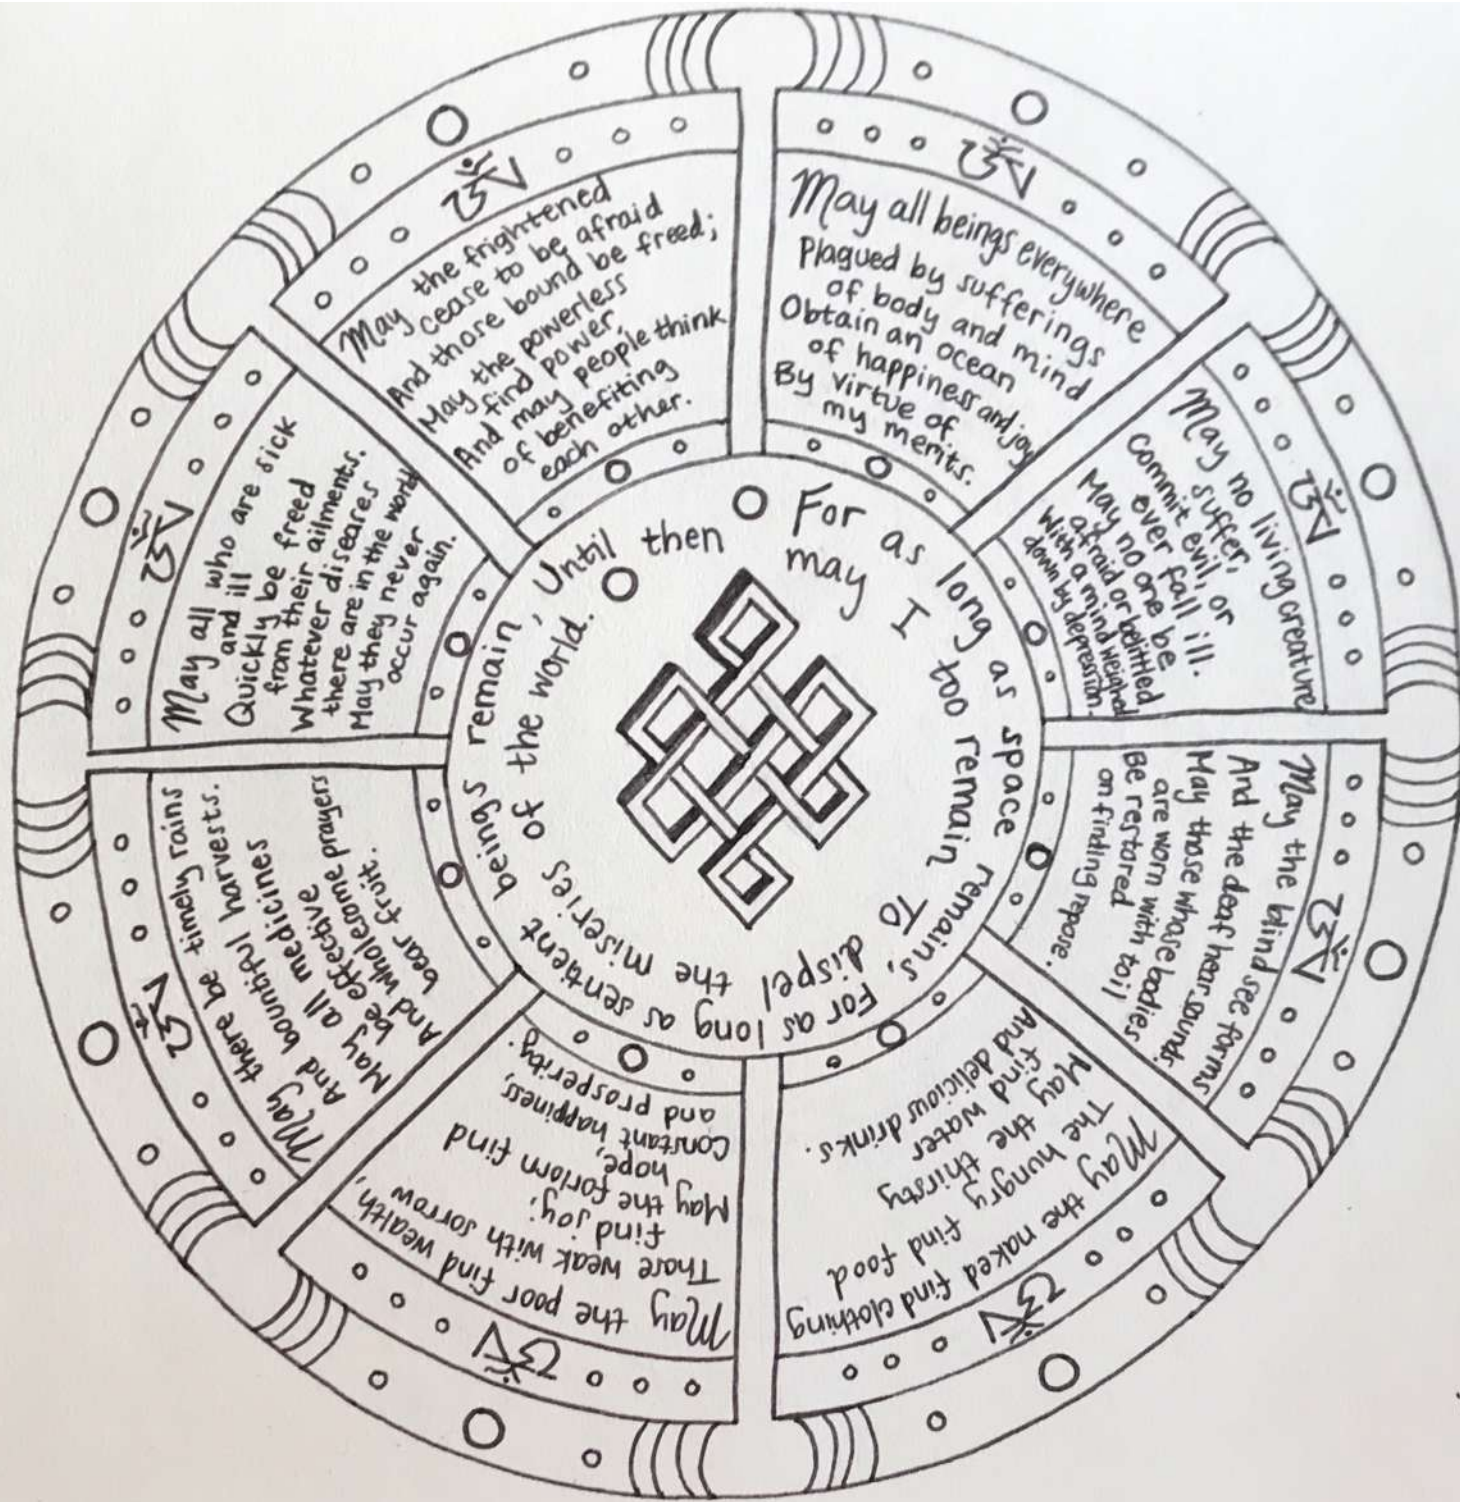 May all beings everywhere
Plagued by sufferings
of body and mind
Obtain an ocean
of happiness and joy
By virtue of
my merits.
May no living creature
suffer,
commit evil, or
ever fall ill.
May no one be
afraid or belittled
With a mind weighed
down by depression.
May the blind see forms
And the deaf hear sounds.
May those whose bodies
are worn with toil
Be restored
on finding repose.
May the naked find clothing
The hungry find food
May the thirsty
find water
And delicious drinks.
May the poor find wealth,
Those weak with sorrow
find joy;
May the forlorn find
hope,
Constant happiness,
and prosperity.
May there be timely rains
And bountiful harvests.
May all medicines
be effective
And wholesome prayers
bear fruit.
May all who are sick
and ill
Quickly be freed
from their ailments.
Whatever diseases
there are in the world
May they never
occur again.
May the frightened
cease to be afraid
And those bound be freed;
May the powerless
find power,
And may people think
of benefiting
each other.
For as long as space remains, For as long as sentient beings remain, Until then
may I too remain To dispel the miseries of the world.
ༀ
ༀ
ༀ
ༀ
ༀ
ༀ
ༀ
ༀ